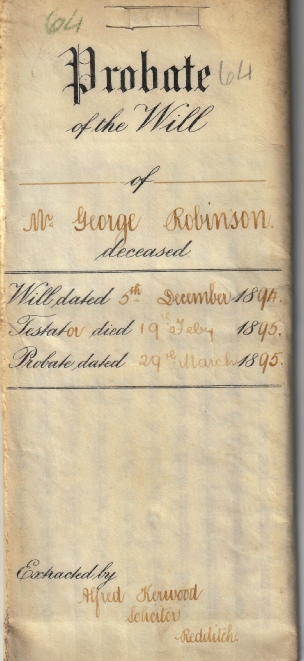 64
Probate 64
of the Will
of
Mr George Robinson.
deceased
Will dated 5th December 1894.
Testator died 19th Feby 1895.
Probate dated 29th March 1895.
Extracted by
Alfred Kerwood
Solicitor
Redditch.